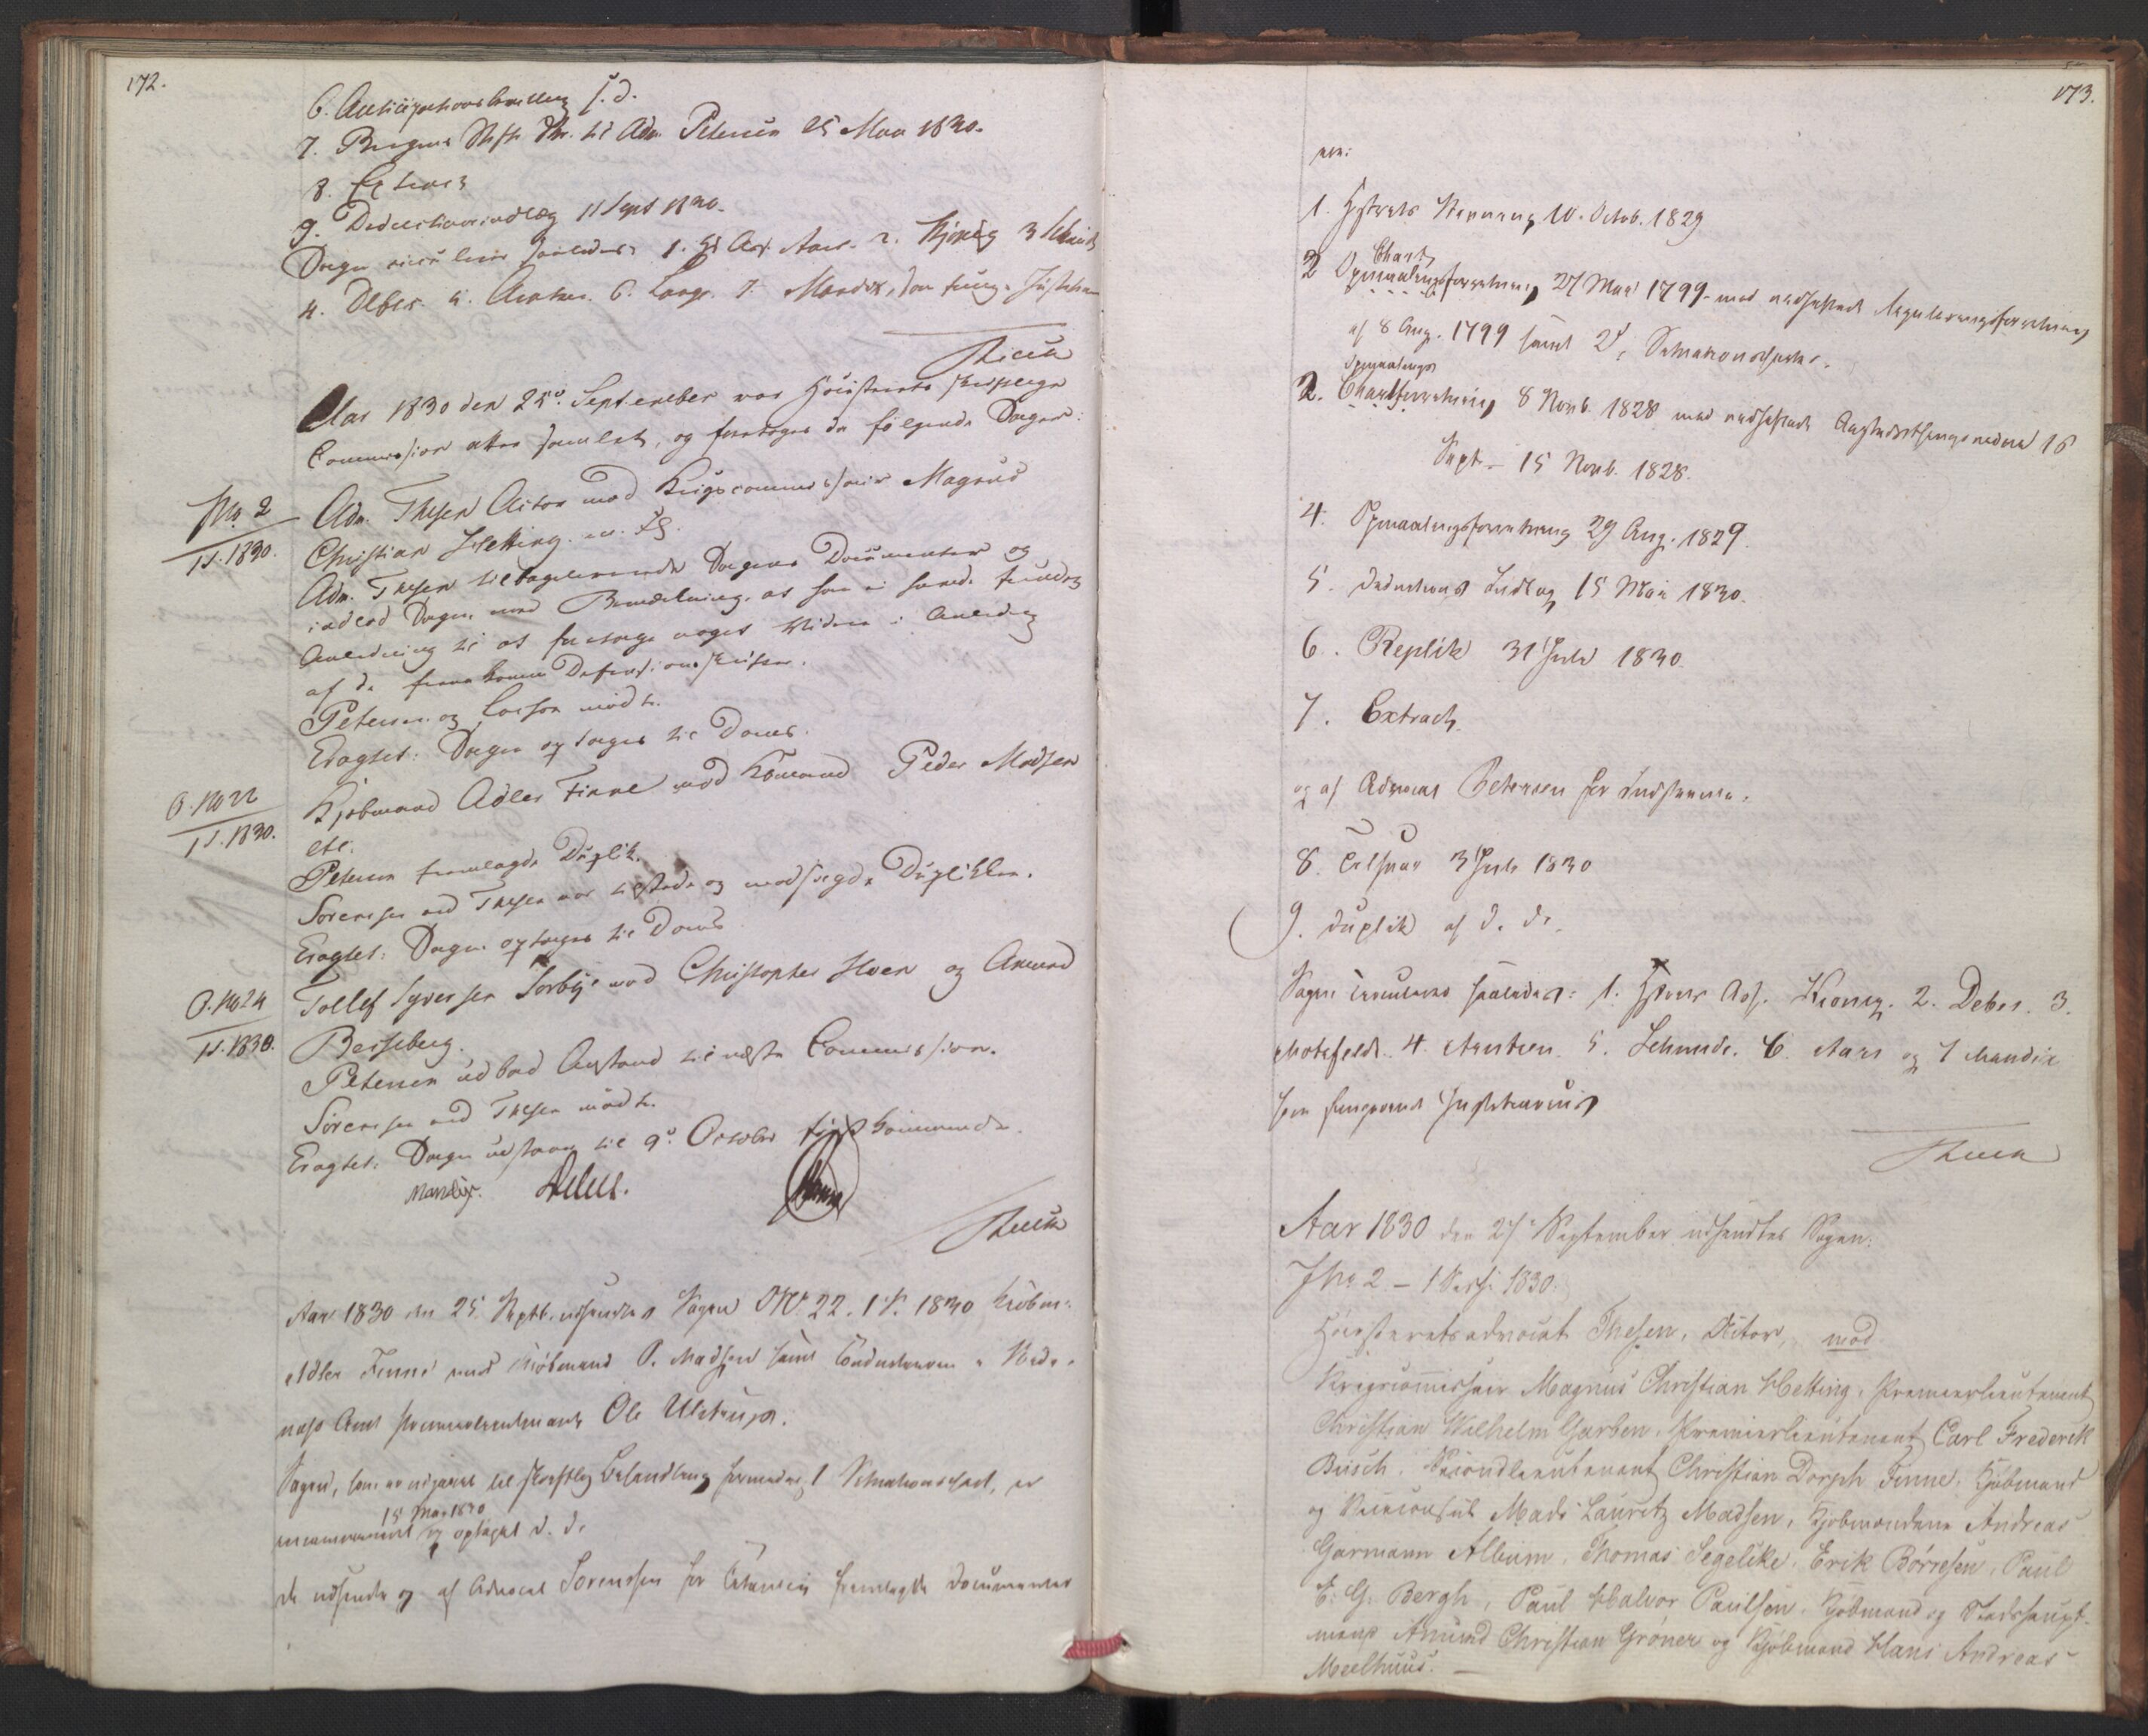 172.
6. d. d.
7. Bergens Stifts til Adv. Petersen 25 Mai 1830.
8. Extract
9. Deductionsindlæg 11 Sept 1830.
Sagen circulerer saaledes: 1. Ass. Aars. 2. Kjønig 3 Schmidt
4. Debes. 5. Arntzen. 6. Lange. 7. Mandix, som fung. Justitia
Aar 1830 den 25de September var Høiesterets skriftlige
Commission atter samlet, og foretoges da følgende Sager:
No. 2
1 S. 1830.
Adv. Thesen Actor mod Krigscommissair Magnus
Christian Hetting m. fl.
Adv. Thesen tilbageleverede Sagens Documenter og
indlod Sagen med Bemærkning, at han ei havde fundet
Anledning til at foretage noget Videre i Anledning
af de fremkomne Defensionsskrifter.
Petersen og Larson mødte.
Eragtet: Sagen optages til Doms.
O. No 22
1 S. 1830.
Kjøbmand Adler Finne mod Kjømand Peder Madsen
etc.
Petersen fremlagde Duplik.
Sørensen ved Thesen var tilstede og modsagde Dupliken.
Eragtet: Sagen optages til Doms
O. No 24
1 S. 1830.
Tollef Syversen Sørbye mod Christopher Hoen og Amund
Berseberg.
Petersen udbad Anstand til næste Commission.
Sørensen ved Thesen mødte.
Eragtet: Sagen udstaar til 9de October førstkommende.
Mandix. Debes.
Aar 1830 den 25 Septb. udsendtes Sagen O No 22. 1 S. 1830 Kiøbm:
Adler Finne mod Kiøbmand P. Madsen samt Conducteuren i
Amt Premierlieutnant Ole Ulstrup.
Sagen, som er udsat til skriftlig Behandling 1 Situationschart, er
15 Mai 1830
og optaget d. d.
De udsendte og af Advocat Sørenssen for Citanten fremlagte Documenter
173.
ere:
1. Hstrets Stevning 10. Octob. 1829
Chart
2 Opmaalingsforretning 27 Mai 1799 med vedhæftede Reguleringsforretning
af 8 Aug. 1799 samt 2de Situationscharter.
Opmaalings
2. Chartforretning 8 Novb. 1828 med vedhæftede 16
Sept. - 15 Novb. 1828.
4. Opmaalingsforretning 29 Aug. 1829.
5. Deductions Indlæg 15 Mai 1830.
6. Replik 31 Juli 1830.
7. Extract.
og af Advocat Petersen for Indstevnte.
8. Tilsvar 3 Juli 1830
9. Duplik af d. d.
Sagen circulerer saaledes: 1. Hstrets Ass. Kiønig. 2. Debes. 3.
Motzfeldt. 4. Arntzen. 5. Schmidt. 6. Aars og 7 Mandix
som fungerende Justitiarius
Aar 1830 den 27de September udsendtes Sagen:
J No. 2 – 1 Sess. 1830.
Høiesteretsadvocat Thesen, Actor, mod
Krigscommissair Magnus Christian Hetting, Premierlieutenant
Christian Wilhelm Garben, Premierlieutenant Carl Frederik
Büsch, Secondlieutenant Christian Dorph Finne, Kjøbmand
og Viceconsul Mads Lauritz Madsen, Kjøbmændene Andreas
Garmann Album, Thomas Segelcke, Erik Børresen, Paul
E. G. Bergh, Paul Halvor Paulsen, Kjøbmand og Stadshaupt-
mand Amund Christian Grøner og Kjøbmand Hans Andreas
Meelhuus. –